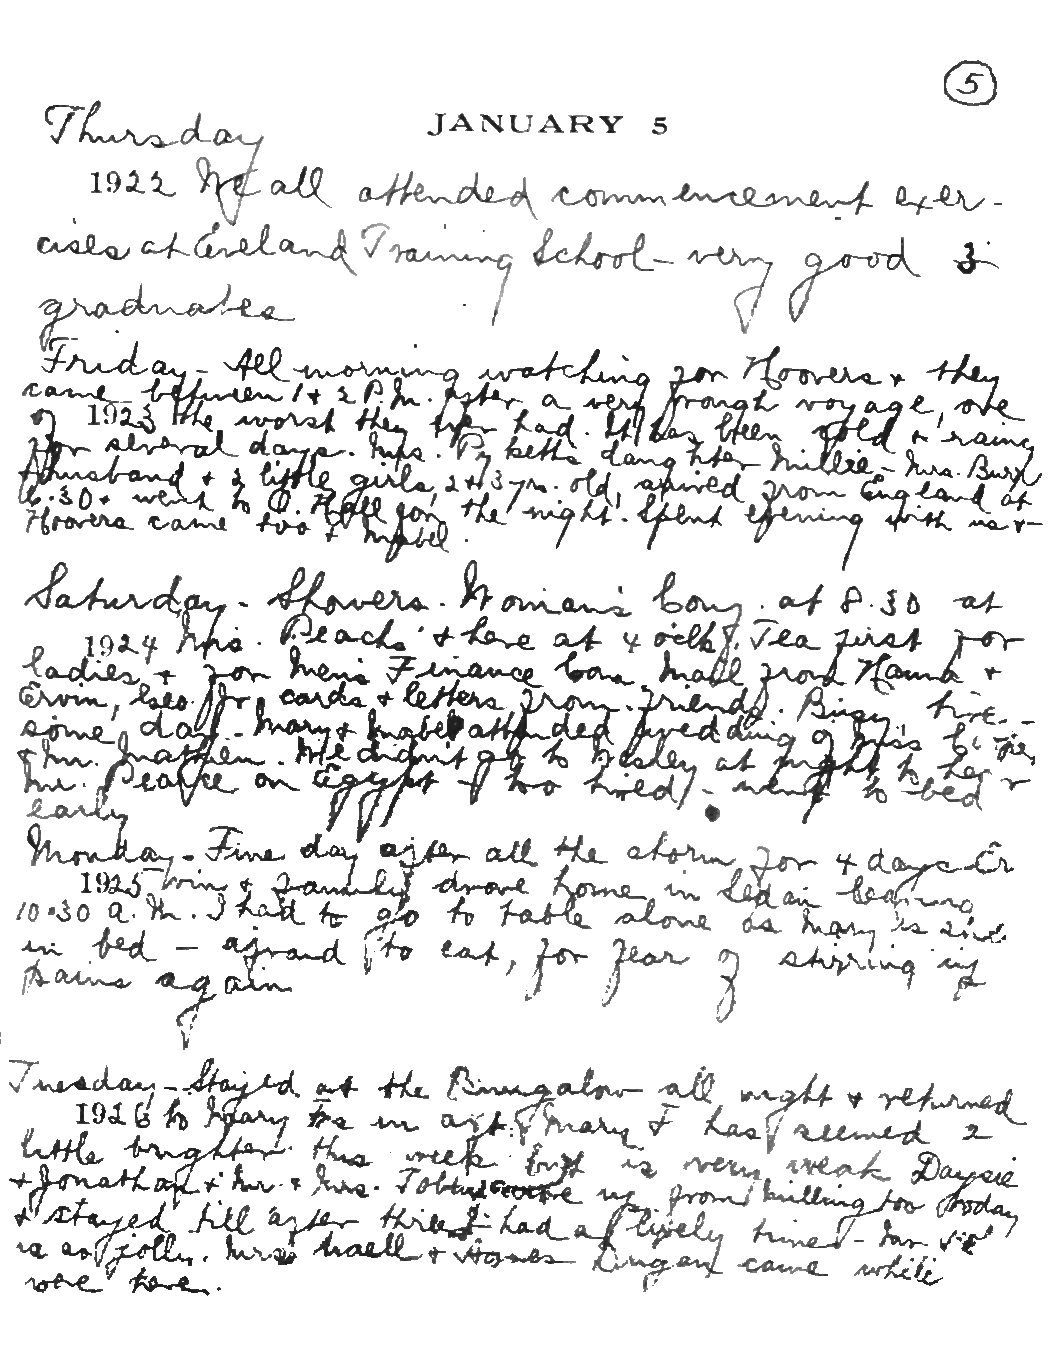 5
JANUARY 5
Thursday
1922 We all attended commencement exer-
cises at Eveland Training School - very good 3
graduates
Friday - All morning watching for Hoovers & they
came between 1 & 2 P.M. after a very rough voyage, one
of 1923 the worst they ever had. It has been cold & rainy
for several days. Mrs. daughter Millie - Mrs. Burr
husband & 2 little girls, 2 & 3 yrs. old, arrived from England at
6.30 & went to O. Hall for the night. Spent evening with us &
Hoovers came too & Mabel.
Saturday - Showers. Woman's Cong. at 8.30 at
1924 Mrs. Peachs' & here at 4 o'clk. Tea first for
ladies & for Men's Finance Com. Mail from Hanna &
Ervin, Geo. Jr cards & letters from friends. Busy, tire-
some day - Mary & Mabel attended wedding of Miss
& Mr. We didn't go to Wesley at night to hear
Mr. Pearce on Egypt - too tired - went to bed
early
Monday - Fine day after all the storm for 4 days Er
1925 win & family drove home in Sedan leaving
10.30 A.M. I had to go to table alone as Mary is still
in bed - afraid to eat, for fear of stirring up
pains again
Tuesday - Stayed at the Bungalow all night & returned
1926 to Mary F's in aft. Mary F has seemed a
little brighter this week but is very weak Daysie
& Jonathan & Mr. & Mrs. up from too today
& stayed till after three & had a lively time - Mr
is so jolly. Mrs & Agnes Dugan came while
were here.